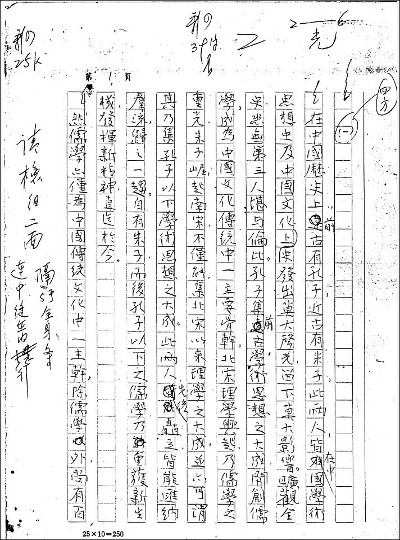 2—6
光
2
四方
(一)
在中國歷史上前古有孔子近古有朱子此兩人皆在中國學術
思想史及中國文化史上發出莫大聲光留下莫大影響曠觀全
史恐無第三人堪與倫比孔子集前古學術思想之大成開創儒
學成為中國文化傳統中一主要骨幹北宋理學興起乃儒學之
重光朱子崛起南宋不僅能集北宋以來理學之大成並亦可謂
其乃集孔子以下學術思想之大成此兩人先後矗立皆能匯納
羣流歸之一趨自有朱子而後孔子以下之儒學乃重獲新生
機發揮新精神直迄於今。
然儒學亦僅為中國傳統文化中一主幹，除儒學外尚有百
第 1 頁
25×10=250